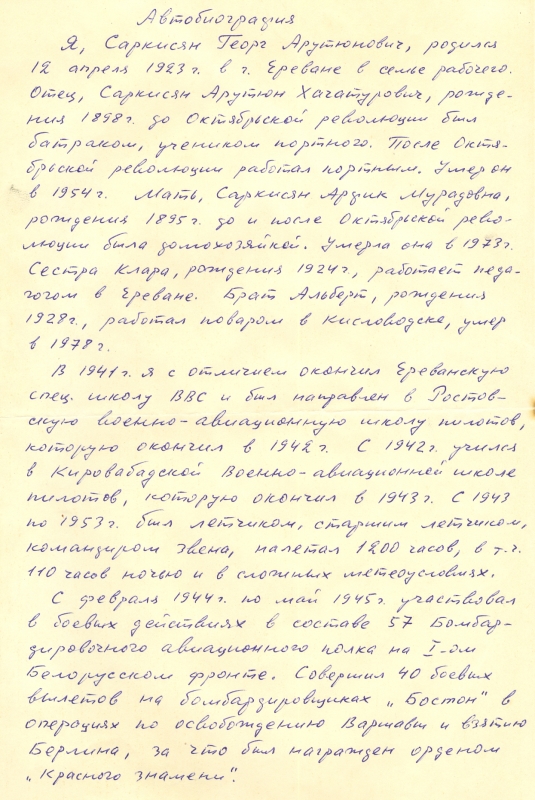 Автобиография
Я, Саркисян Георг Арутюнович, родился
12 апреля 1923 г. в г. Ереване в семье рабочего.
Отец, Саркисян Арутюн Хачатурович, рожде-
ния 1898 г. до Октябрьской революции был
батраком, учеником портного. После Октя-
брьской революции работал портным. Умер он
в 1954 г. Мать, Саркисян Ардик Мурадовна,
рождения 1895 г. до и после Октябрьской рево-
люции была домохозяйкой. Умерла она в 1973 г.
Сестра Клара, рождения 1924 г., работает педа-
гогом в Ереване. Брат Альберт, рождения
1928 г., работал поваром в Кисловодске, умер
в 1978 г.
В 1941 г. я с отличием окончил Ереванскую
спец. школу ВВС и был направлен в Ростов-
скую военно-авиационную школу пилотов,
которую окончил в 1942 г. С 1942 г. учился
в Кировабадской Военно-авиационной школе
пилотов, которую окончил в 1943 г. С 1943
по 1953 г. был летчиком, старшим летчиком,
командиром звена, налетал 1200 часов, в т.ч.
110 часов ночью и в сложных метеоусловиях.
С февраля 1944 г. по май 1945 г. участвовал
в боевых действиях в составе 57 Бомбар-
дировочного авиационного полка на I-ом
Белорусском фронте. Совершил 40 боевых
вылетов на бомбардировщиках „Бостон" в
операциях по освобождению Варшавы и взятию
Берлина, за что был награжден орденом
„Красного знамени".